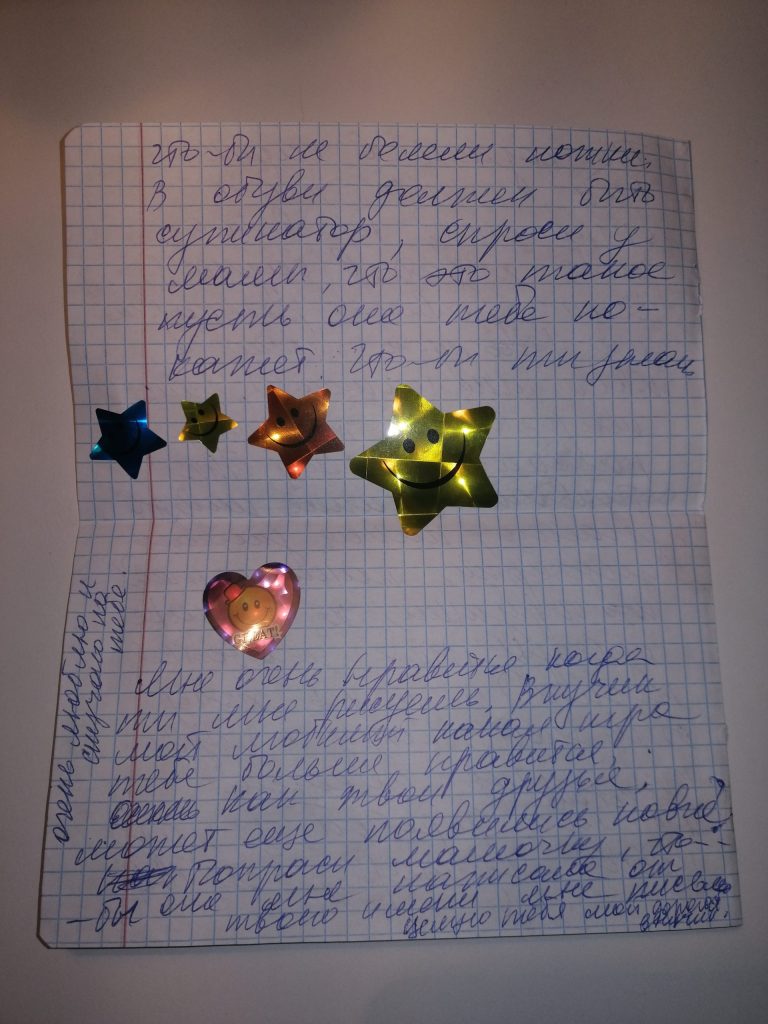 что-бы не болели ножки.
В обуви должен быть
супинатор, спроси у
мамы, что это такое
пусть она тебе по-
кажет. Что-бы ты делал
GREAT!
Мне очень нравится когда
ты мне рисуешь. Внучик
мой любимый какая игра
тебе больше нравится,
как твои друзья,
может еще появились новые?
Попроси мамочку, что-
-бы она мне написала от
твоего имени мне письмо
целую тебя мой дорогой
внучик.
очень люблю и
скучаю по
тебе.